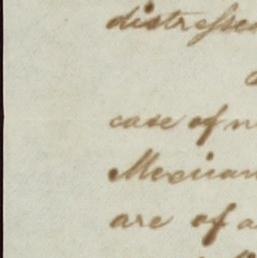 distresse
case of n
Mexican
are of a